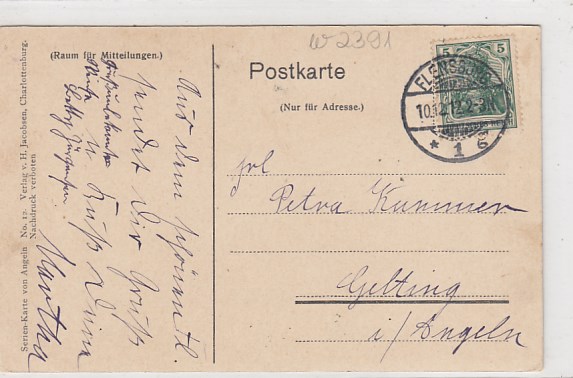 w 2391
(Raum für Mitteilungen.)
Postkarte
(Nur für Adresse.)
5 5
FLENSBURG
10.12.12. 2-3N
* 1 c
Frl
Petra Kummer
Gelting
i/Angeln
Aus dem schönen Fl.
sendet Dir Gruß
u Kuß Deine
Martha
Serien-Karte von Angeln No. 12. Verlag v. H. Jacobsen, Charlottenburg.
Nachdruck verboten